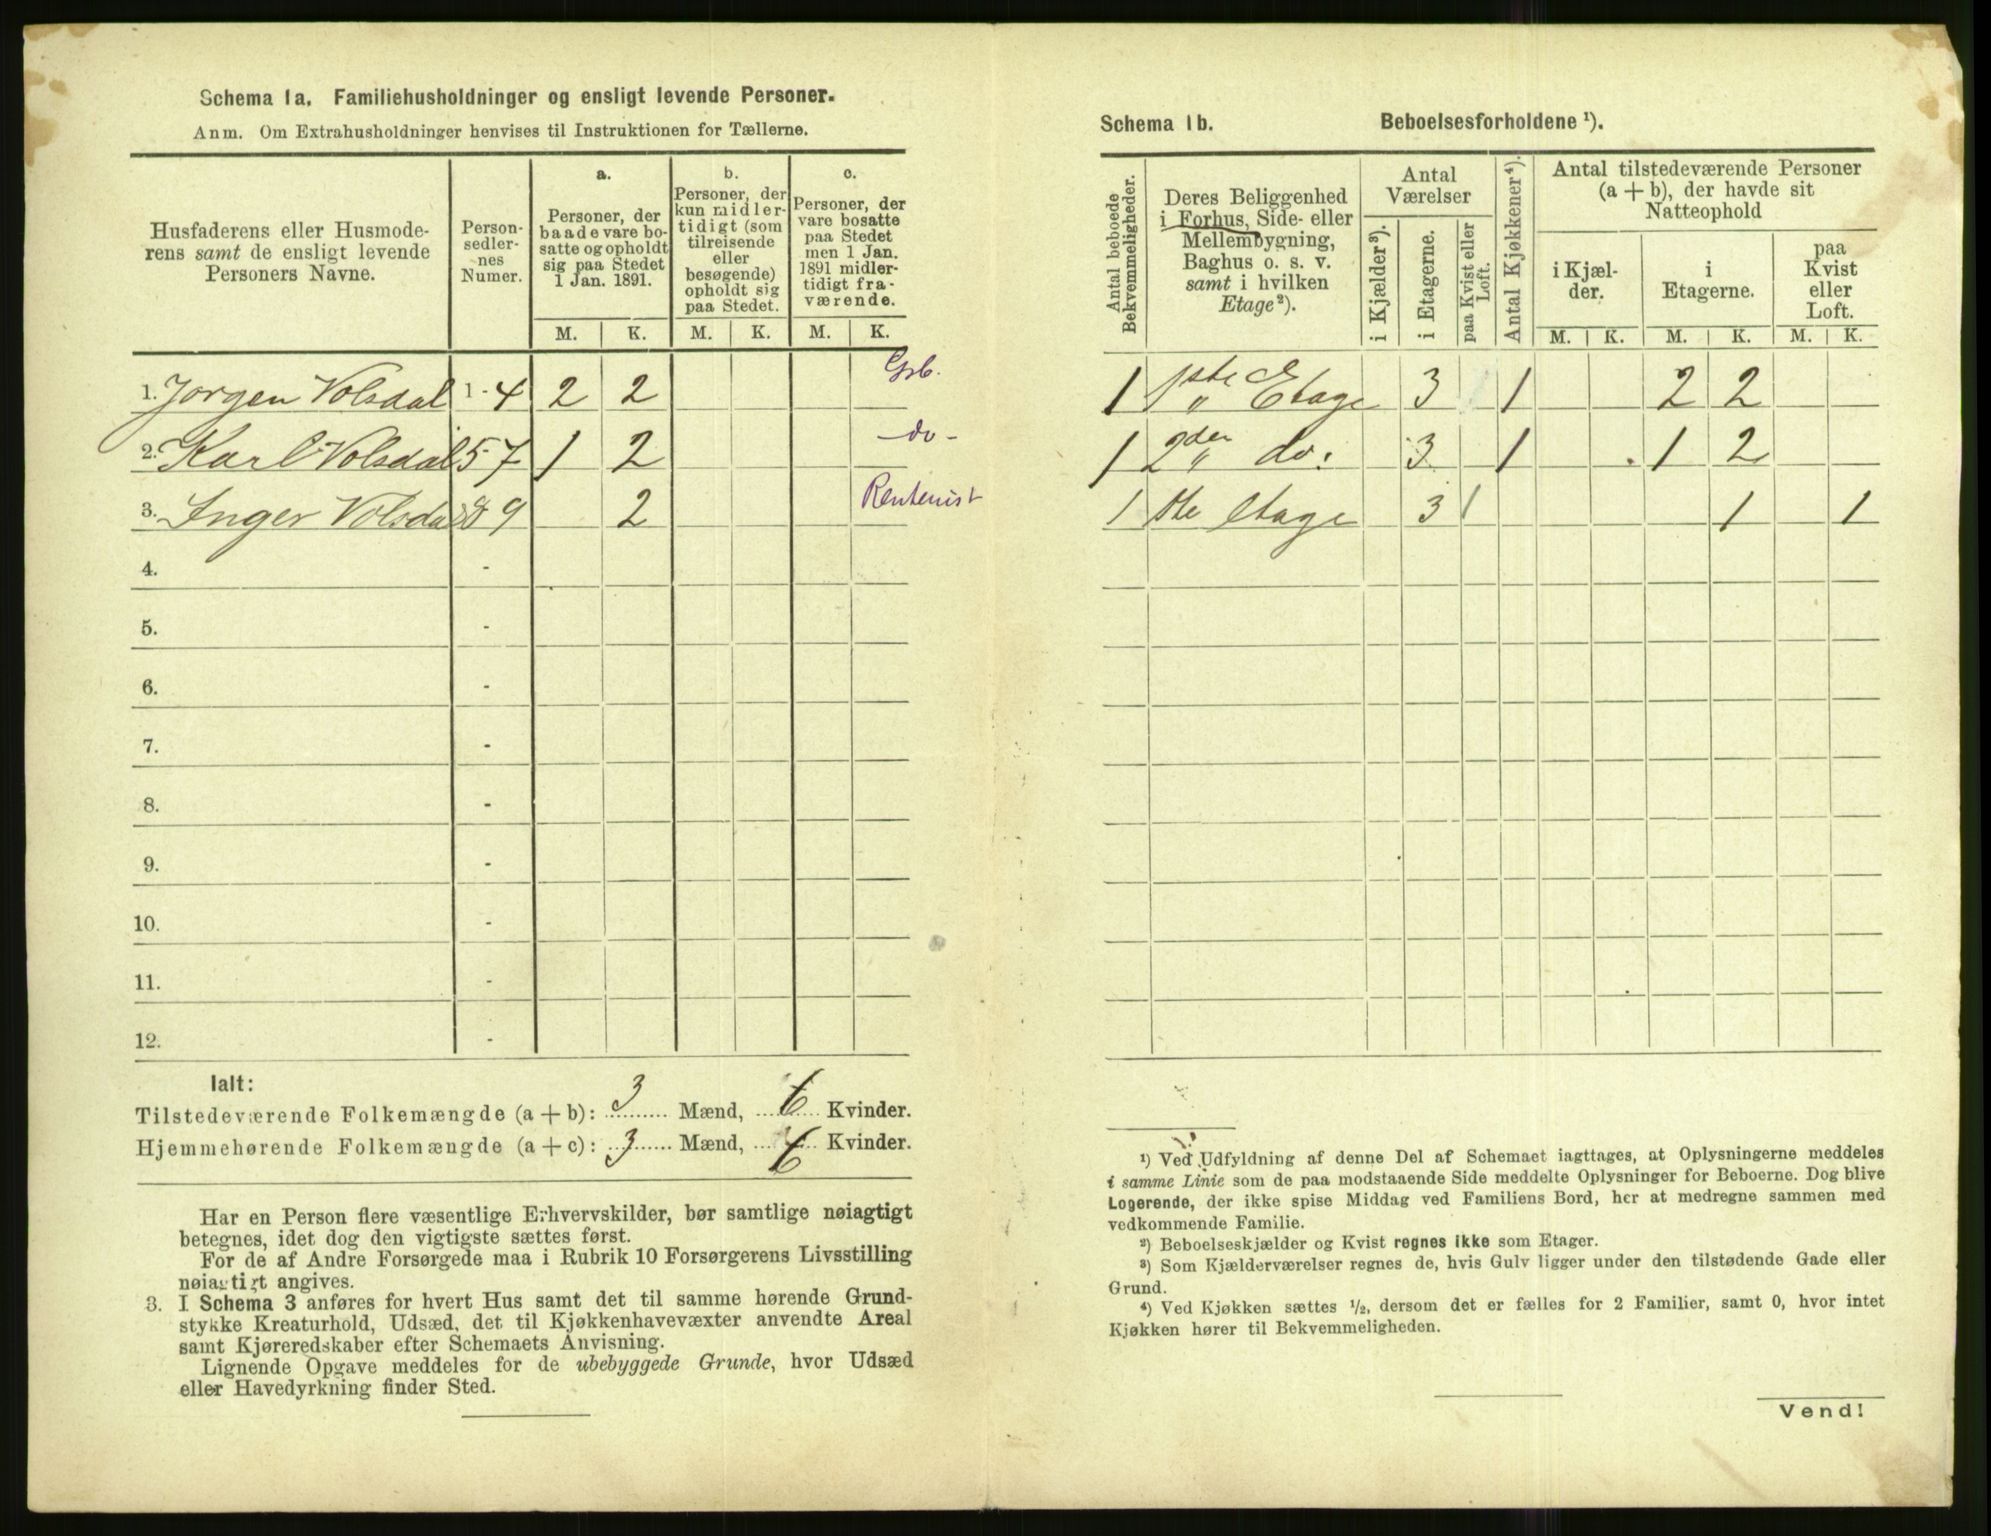 Schema 1a. Familiehusholdninger og ensligt levende Personer.
Anm. Om Extrahusholdninger henvises til Instruktionen for Tællerne.
Husfaderens eller Husmode-
rens samt de ensligt levende
Personers Navne.
Person-
sedler-
nes
Numer.
a.
Personer, der
baade vare bo-
satte og opholdt
sig paa Stedet
1 Jan. 1891.
b.
Personer, der
kun midler-
tidigt (som
tilreisende
eller
besøgende)
opholdt sig
paa Stedet.
c.
Personer, der
vare bosatte
paa Stedet
men 1 Jan.
1891 midler-
tidigt fra-
værende.
M. K. M. K. M. K.
1. Jørgen Volsdal 1-4 2 2 Gsb.
2. Karl Volsdal 5-7 1 2 -do-
3. Inger Volsdal 8-9 2 Rentenist
4. -
5. -
6. -
7. -
8. -
9. -
10. -
11. -
12. -
Ialt:
Tilstedeværende Folkemængde (a + b): 3 Mænd, 6 Kvinder.
Hjemmehørende Folkemængde (a + c): 3 Mænd, 6 Kvinder.
Har en Person flere væsentlige Erhvervskilder, bør samtlige nøiagtigt
betegnes, idet dog den vigtigste sættes først.
For de af Andre Forsørgede maa i Rubrik 10 Forsørgerens Livsstilling
nøiagtigt angives.
3. I Schema 3 anføres for hvert Hus samt det til samme hørende Grund-
stykke Kreaturhold, Udsæd, det til Kjøkkenhavevæxter anvendte Areal
samt Kjøreredskaber efter Schemaets Anvisning.
Lignende Opgave meddeles for de ubebyggede Grunde, hvor Udsæd
eller Havedyrkning finder Sted.
Schema 1b. Beboelsesforholdene ¹).
Antal beboede
Bekvemmeligheder.
Deres Beliggenhed
i Forhus, Side- eller
Mellembygning,
Baghus o. s. v.
samt i hvilken
Etage²).
Antal
Værelser
i Kjælder³).
i Etagerne.
paa Kvist eller
Loft.
Antal Kjøkkener⁴).
Antal tilstedeværende Personer
(a + b), der havde sit
Natteophold
i Kjæl-
der.
i
Etagerne.
paa
Kvist
eller
Loft.
M. K. M. K. M. K.
1 1ste Etage 3 1 2 2
1 2den do: 3 1 1 2
1 1ste Etage 3 1 1 1
¹) Ved Udfyldning af denne Del af Schemaet iagttages, at Oplysningerne meddeles
i samme Linie som de paa modstaaende Side meddelte Oplysninger for Beboerne. Dog blive
Logerende, der ikke spise Middag ved Familiens Bord, her at medregne sammen med
vedkommende Familie.
²) Beboelseskjælder og Kvist regnes ikke som Etager.
³) Som Kjælderværelser regnes de, hvis Gulv ligger under den tilstødende Gade eller
Grund.
⁴) Ved Kjøkken sættes ½, dersom det er fælles for 2 Familier, samt 0, hvor intet
Kjøkken hører til Bekvemmeligheden.
Vend!